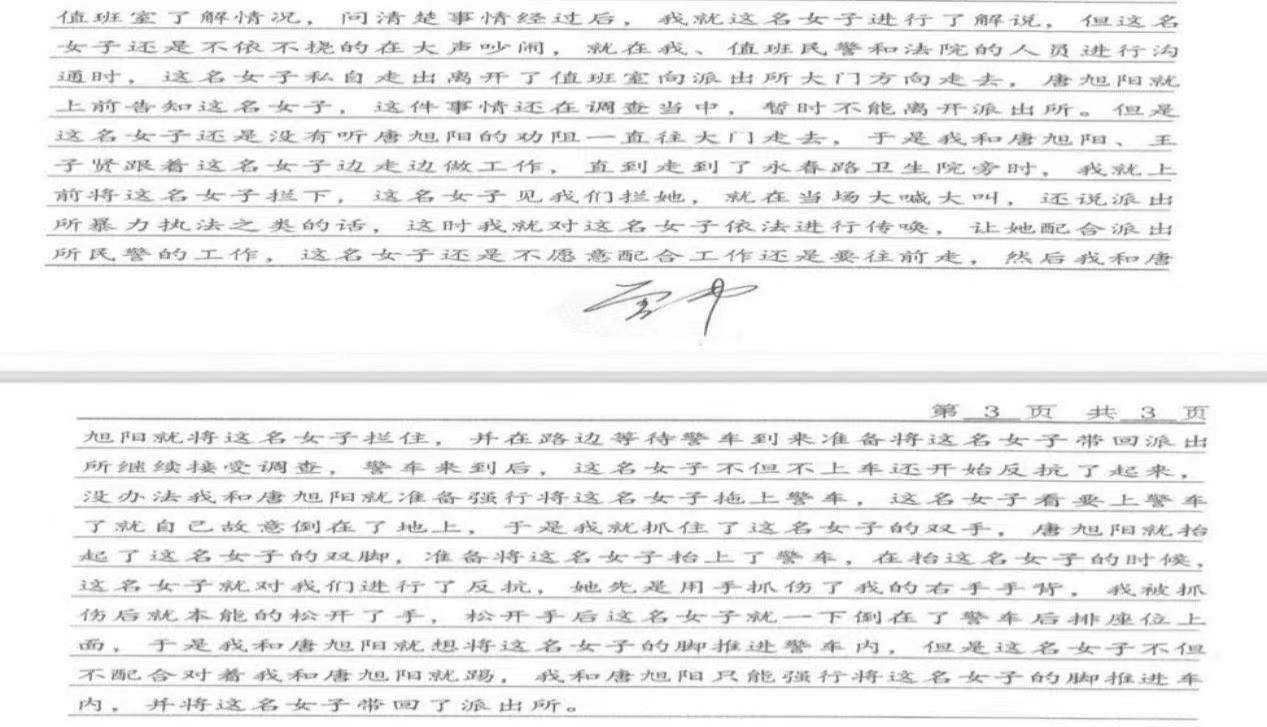 值班室了解情况，问清楚事情经过后，我就这名女子进行了解说，但这名
女子还是不依不挠的在大声吵闹，就在我、值班民警和法院的人员进行沟
通时，这名女子私自走出离开了值班室向派出所大门方向走去，唐旭阳就
上前告知这名女子，这件事情还在调查当中，暂时不能离开派出所。但是
这名女子还是没有听唐旭阳的劝阻一直往大门走去，于是我和唐旭阳、王
子贤跟着这名女子边走边做工作，直到走到了永春路卫生院旁时，我就上
前将这名女子拦下，这名女子见我们拦她，就在当场大喊大叫，还说派出
所暴力执法之类的话，这时我就对这名女子依法进行传唤，让她配合派出
所民警的工作，这名女子还是不愿意配合工作还是要往前走，然后我和唐
第 3 页 共 3 页
旭阳就将这名女子拦住，并在路边等待警车到来准备将这名女子带回派出
所继续接受调查，警车来到后，这名女子不但不上车还开始反抗了起来，
没办法我和唐旭阳就准备强行将这名女子拖上警车，这名女子看要上警车
了就自己故意倒在了地上，于是我就抓住了这名女子的双手，唐旭阳就抬
起了这名女子的双脚，准备将这名女子抬上了警车，在抬这名女子的时候，
这名女子就对我们进行了反抗，她先是用手抓伤了我的右手手背，我被抓
伤后就本能的松开了手，松开手后这名女子就一下倒在了警车后排座位上
面，于是我和唐旭阳就想将这名女子的脚推进警车内，但是这名女子不但
不配合对着我和唐旭阳就踢，我和唐旭阳只能强行将这名女子的脚推进车
内，并将这名女子带回了派出所。